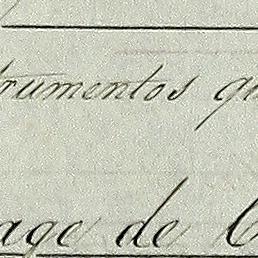 trumentos qu
age de C